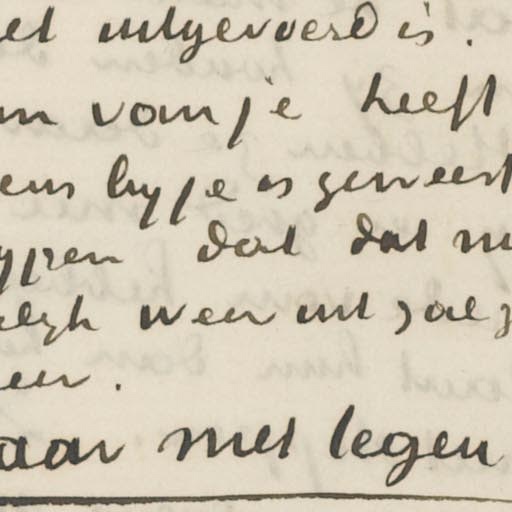 et uitgevoerd is.
an van je heeft
eens by je is geweest
ypen dat dat n
elyk weer uit zal z
eer.
aar niet tegen